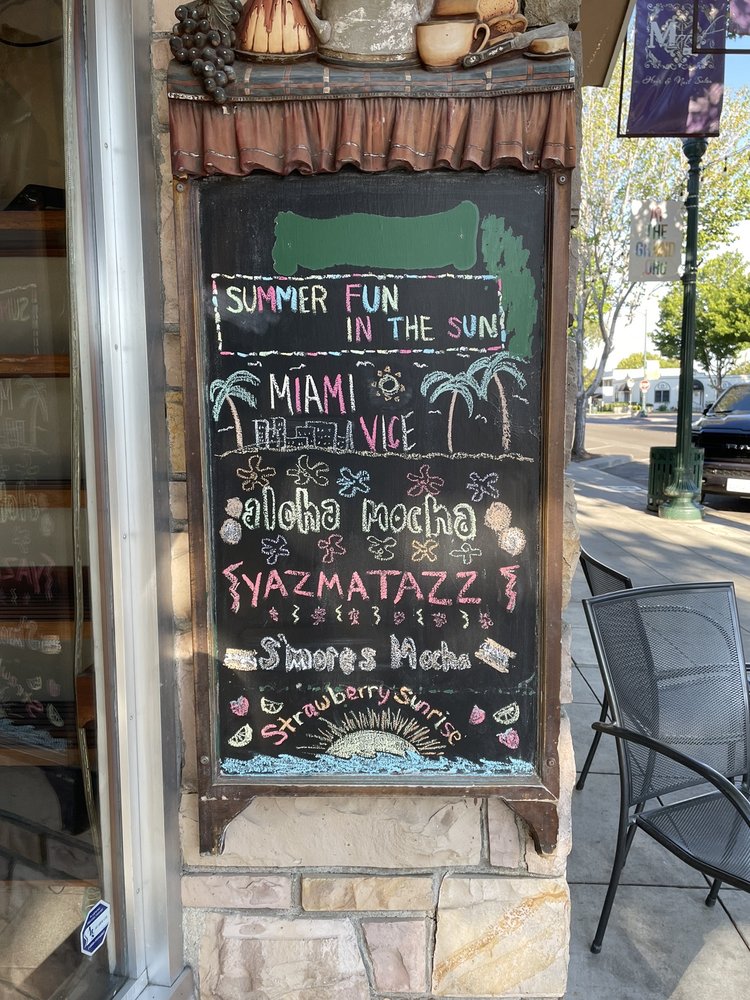 SUMMER FUN
IN THE SUN
MIAMI
VICE
aloha mocha
YAZMATAZZ
S'mores Mocha
Strawberry Sunrise
Hair & Nail Salon
THE
GRAND